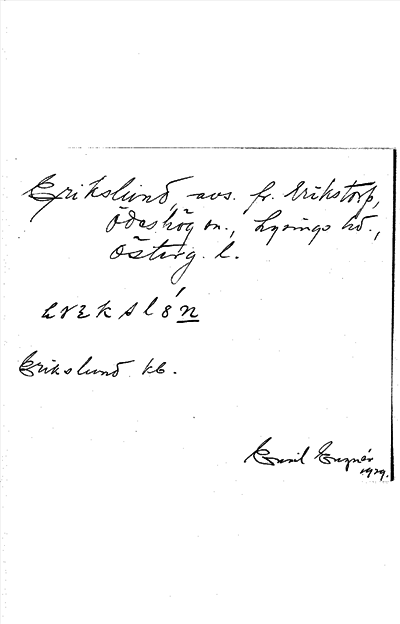 Erikslund, avs. fr. Erikstorp,
Ödeshög sn., Lysings hd.,
Österg. l.
Erikslund kb.
Emil
1929.